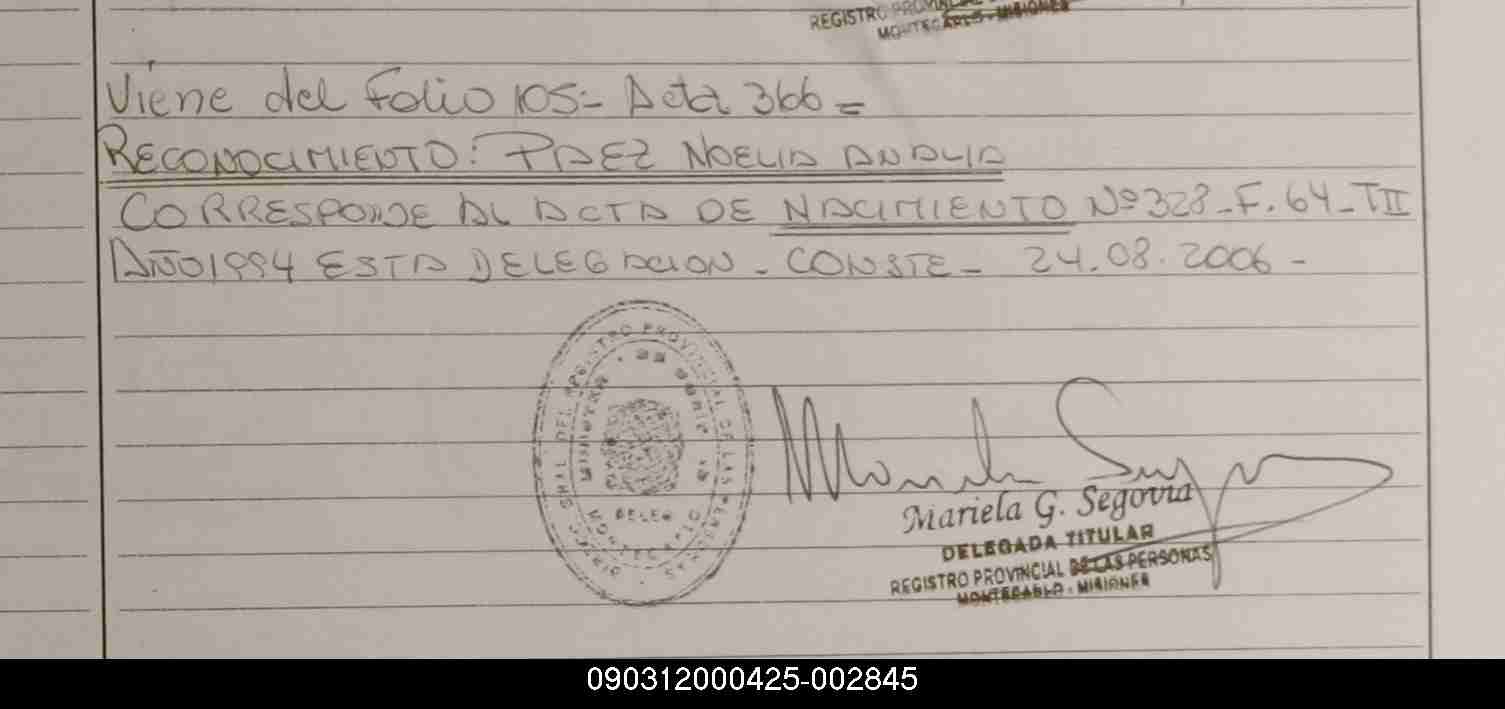 REGISTRO PROVINCIAL
MONTECARLO - MISIONES
Viene del Folio 105 - Acta 366 =
RECONOCIMIENTO: PAEZ NOELIA ANALIA
CORRESPONDE AL ACTA DE NACIMIENTO Nº 328 - F. 64 - TII
AÑO 1994 ESTA DELEGACION - CONSTE - 24.08.2006 -
Mariela G. Segovia
DELEGADA TITULAR
REGISTRO PROVINCIAL DE LAS PERSONAS
MONTECARLO - MISIONES
090312000425-002845